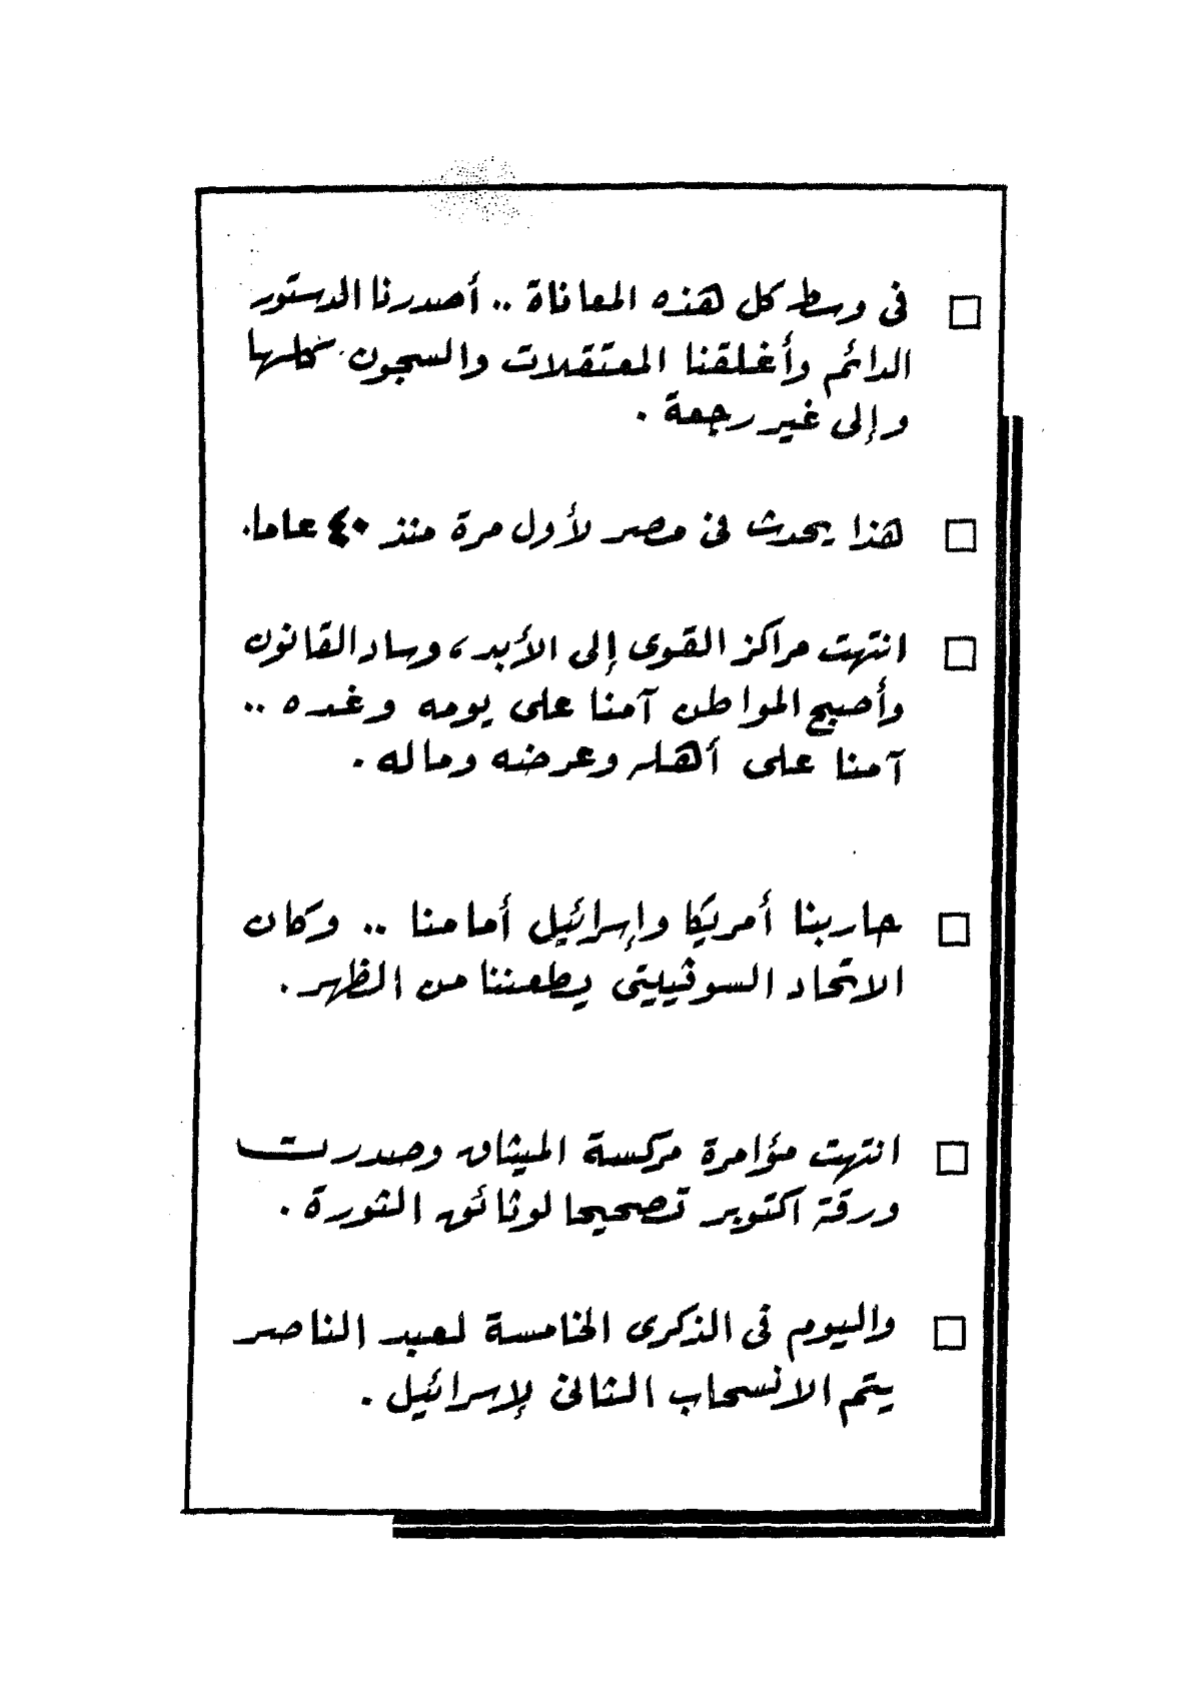 □ فى وسط كل هذه المعاناة .. أصدرنا الدستور
الدائم وأغلقنا المعتقلات والسجون كلها
وإلى غير رجعة .
□ هذا يحدث فى مصر لأول مرة منذ ٤٠ عاما .
□ انتهت مراكز القوى إلى الأبد ، وساد القانون
وأصبح المواطن آمنا على يومه وغده ..
آمنا على أهله وعرضه وماله .
□ حاربنا أمريكا وإسرائيل أمامنا .. وكان
الاتحاد السوڤييتى يطعننا من الظهر .
□ انتهت مؤامرة مركسة الميثاق وصدرت
ورقة اكتوبر تصحيحا لوثائق الثورة .
□ واليوم فى الذكرى الخامسة لعبد الناصر
يتم الانسحاب الثانى لإسرائيل .